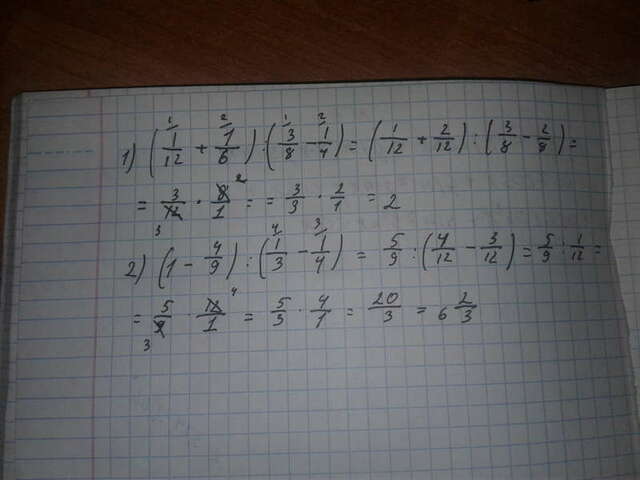 1) (1/12 + 1/6) : (3/8 - 1/4) = (1/12 + 2/12) : (3/8 - 2/8) =
= 3/12 · 8/1 = = 3/3 · 2/1 = 2
2) (1 - 4/9) : (1/3 - 1/4) = 5/9 : (4/12 - 3/12) = 5/9 : 1/12 =
= 5/9 · 12/1 = 5/3 · 4/1 = 20/3 = 6 2/3